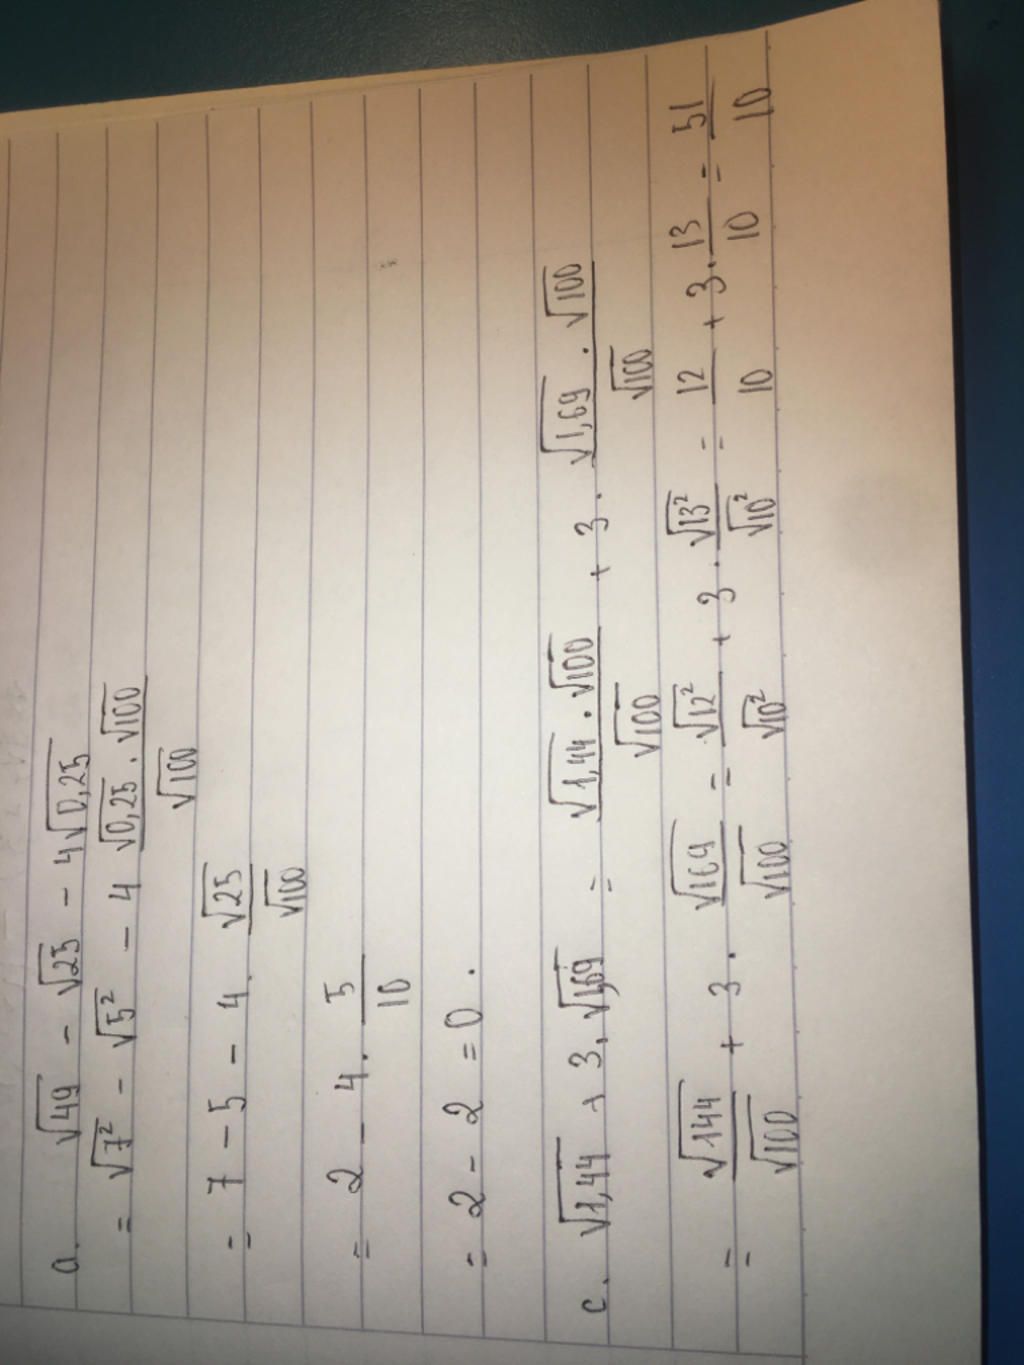 a. √49 - √25 - 4√0,25
= √7² - √5² - 4 √0,25 . √100 / √100
= 7 - 5 - 4 . √25 / √100
= 2 - 4 . 5/10
= 2 - 2 = 0 .
c. √1,44 + 3 . √1,69 = √1,44 . √100 / √100 + 3 . √1,69 . √100 / √100
= √144 / √100 + 3 . √169 / √100 = √12² / √10² + 3 . √13² / √10² = 12/10 + 3 . 13/10 = 51/10